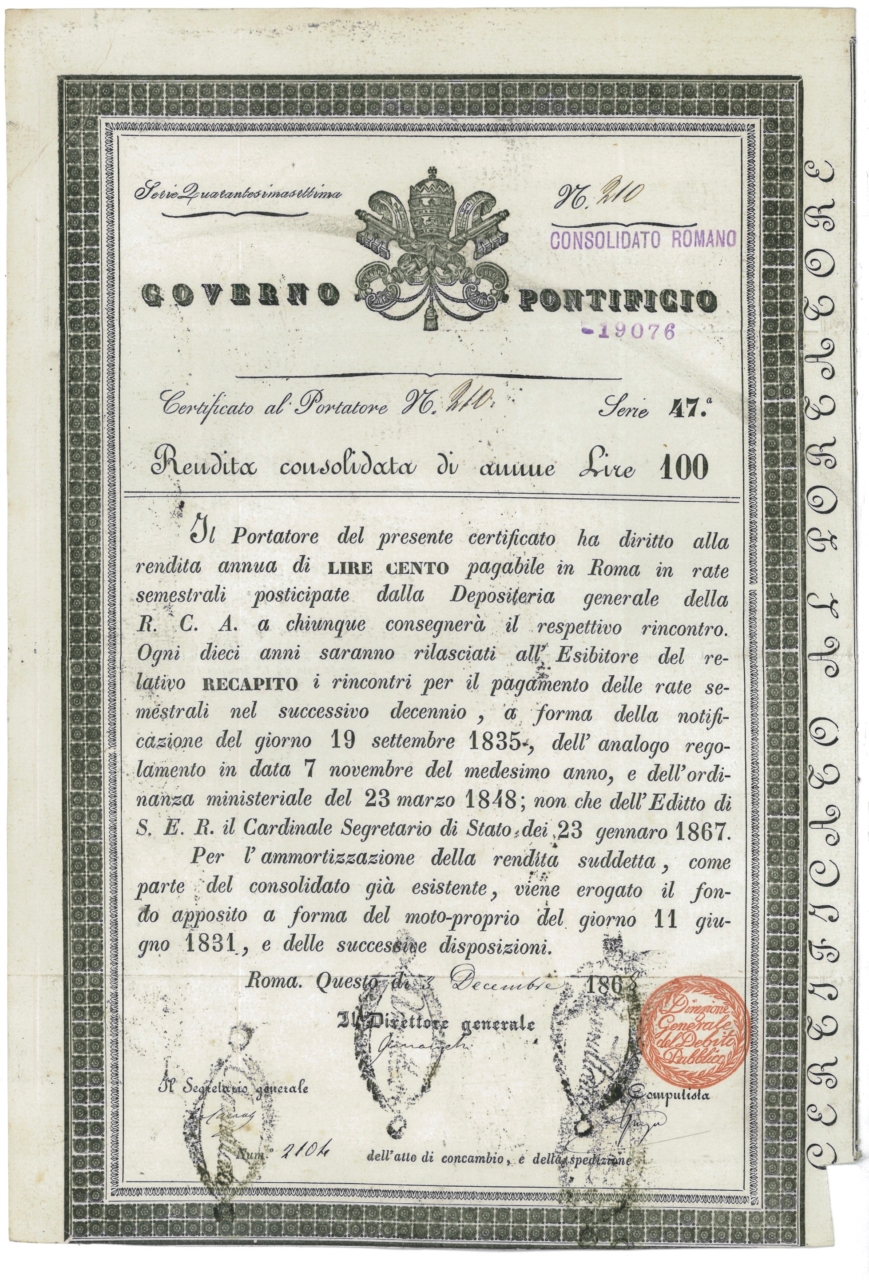 Serie Quarantesimasettima
N. 210
CONSOLIDATO ROMANO
GOVERNO PONTIFICIO
-19076
Certificato al Portatore N. 210. Serie 47.ª
Rendita consolidata di annue Lire 100
Il Portatore del presente certificato ha diritto alla
rendita annua di LIRE CENTO pagabile in Roma in rate
semestrali posticipate dalla Depositeria generale della
R. C. A. a chiunque consegnerà il respettivo rincontro.
Ogni dieci anni saranno rilasciati all' Esibitore del re-
lativo RECAPITO i rincontri per il pagamento delle rate se-
mestrali nel successivo decennio, a forma della notifi-
cazione del giorno 19 settembre 1835, dell' analogo rego-
lamento in data 7 novembre del medesimo anno, e dell'ordi-
nanza ministeriale del 23 marzo 1848; non che dell'Editto di
S. E. R. il Cardinale Segretario di Stato dei 23 gennaro 1867.
Per l'ammortizzazione della rendita suddetta, come
parte del consolidato già esistente, viene erogato il fon-
do apposito a forma del moto-proprio del giorno 11 giu-
gno 1831, e delle successive disposizioni.
Roma. Questo dì Decembre 186
Il Direttore generale
Direzione
Generale
del Debito
Pubblico
Il Segretario generale
Computista
Num° 2104 dell'atto di concambio, e della spedizione
CERTIFICATO AL PORTATORE